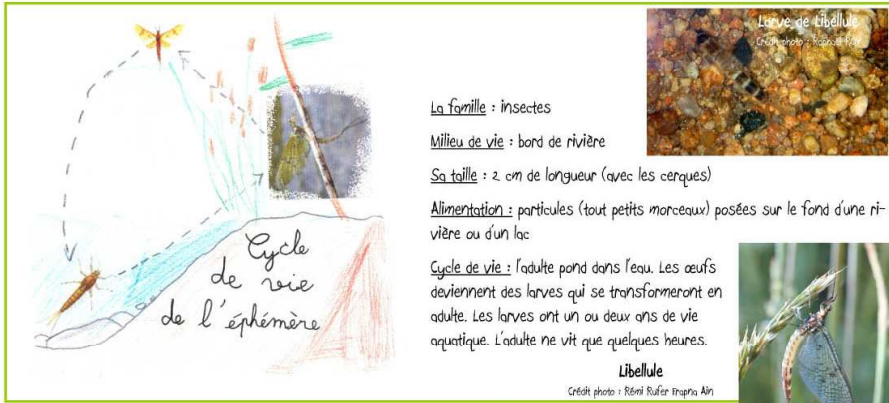 Cycle
de vie
de l'éphémère
Larve de Libellule
Crédit photo : Raphaël
La famille : insectes
Milieu de vie : bord de rivière
Sa taille : 2 cm de longueur (avec les cerques)
Alimentation : particules (tout petits morceaux) posées sur le fond d'une ri-
vière ou d'un lac
Cycle de vie : l'adulte pond dans l'eau. Les œufs
deviennent des larves qui se transformeront en
adulte. Les larves ont un ou deux ans de vie
aquatique. L'adulte ne vit que quelques heures.
Libellule
Crédit photo : Rémi Rufer Frapna Ain